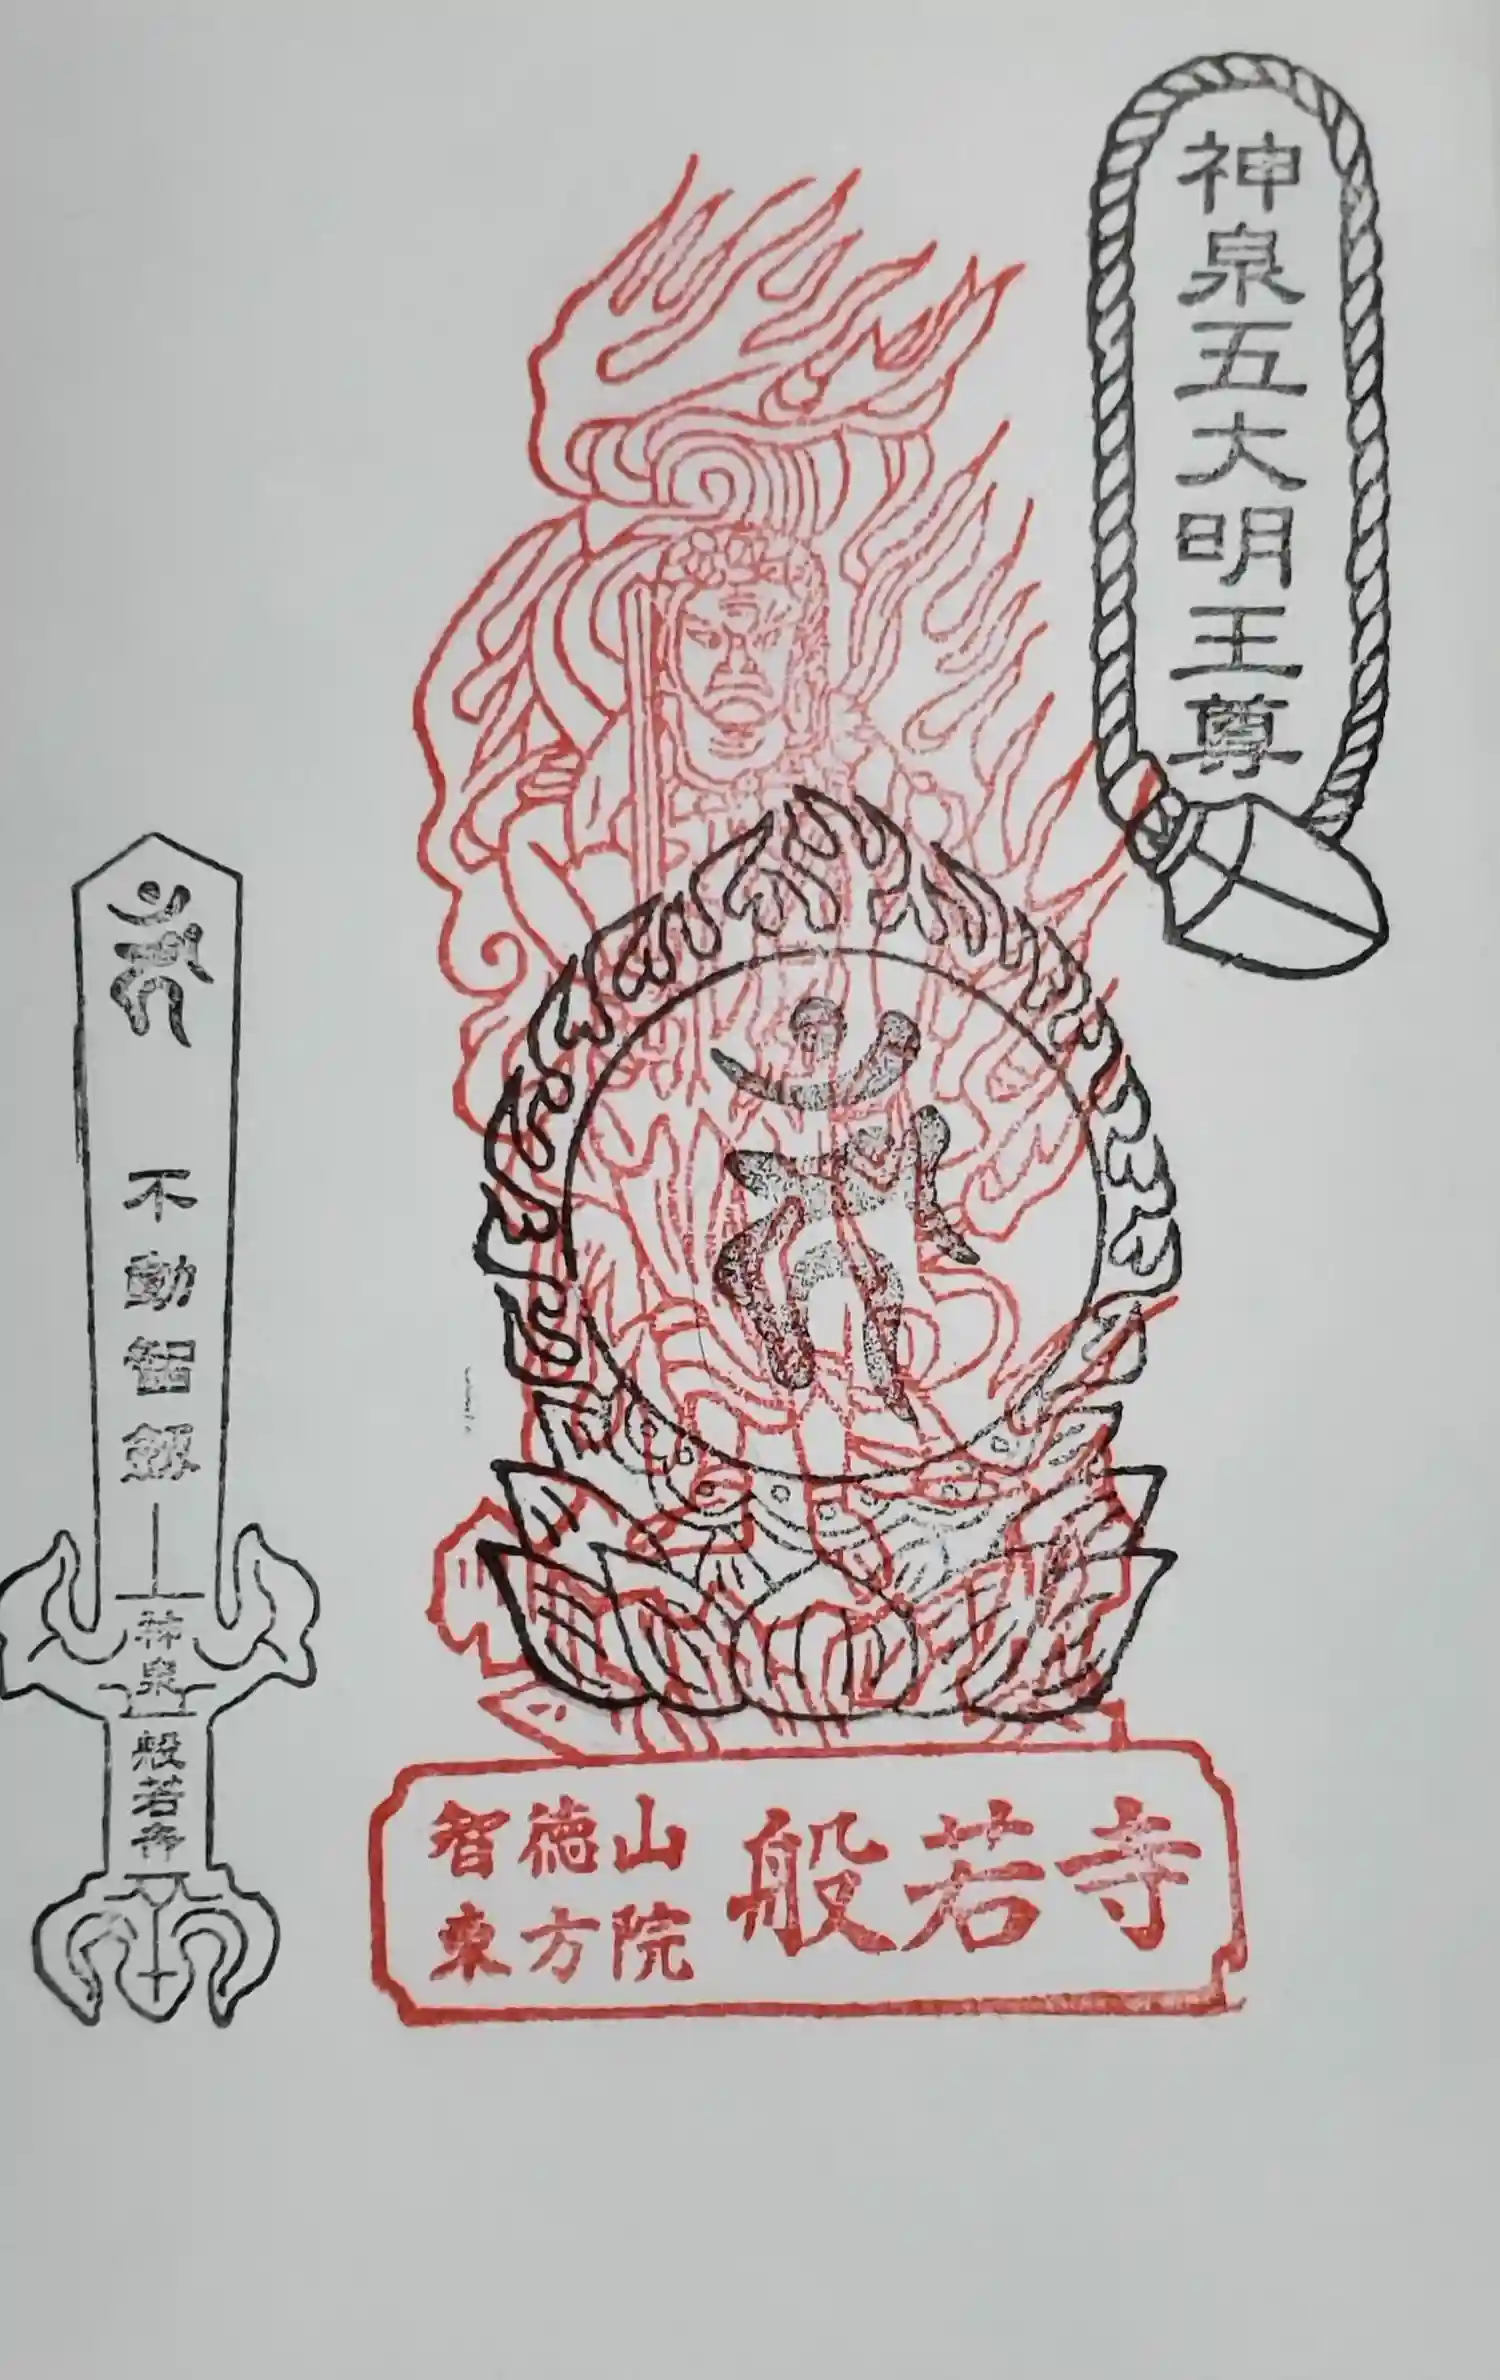 神泉五大明王尊
不動智劔
神泉
般若寺
智徳山
東方院
般若寺